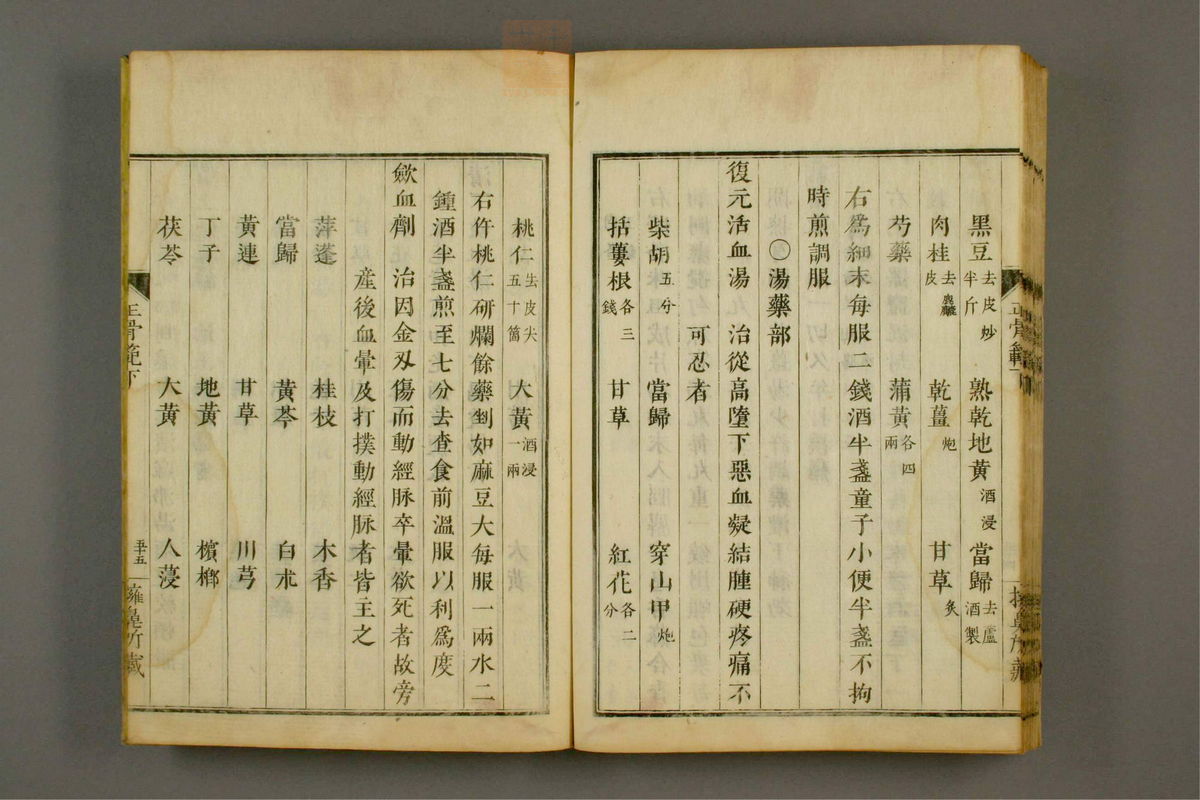 黑豆去皮炒半斤 熟乾地黃酒浸 當歸去蘆酒製
肉桂去麤皮 乾薑炮 甘草炙
芍藥 蒲黃各四兩
右爲細末每服二錢酒半盞童子小便半盞不拘
時煎調服
〇湯藥部
復元活血湯 治從高墮下惡血凝結腫硬疼痛不
可忍者
柴胡五分 當歸 穿山甲炮
括蔞根各三錢 甘草 紅花各二分
正骨範下
桃仁去皮尖五十箇 大黃酒浸一兩
右件桃仁研爛餘藥剉如麻豆大每服一兩水二
鍾酒半盞煎至七分去査食前溫服以利爲度
歛血劑 治因金刄傷而動經脉卒暈欲死者故旁
產後血暈及打撲動經脉者皆主之
萍蓬 桂枝 木香
當歸 黃芩 白朮
黃連 甘草 川芎
丁子 地黃 檳榔
茯苓 大黃 人蓡
正骨範下 五十五 擁鼻竹藏